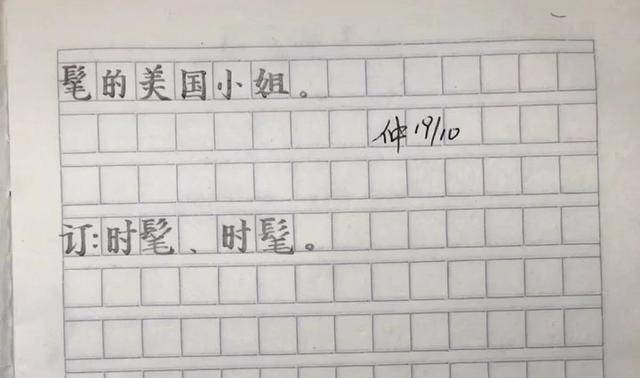 髦的美国小姐。
仲 19/10
订:时髦、时髦。